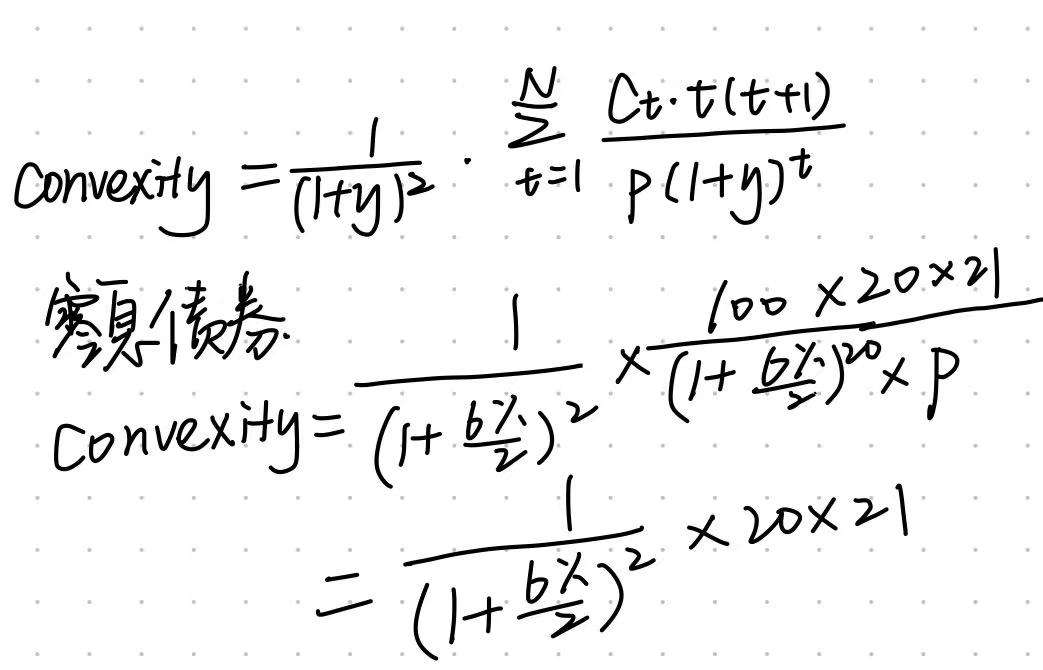 convexity = 1/(1+y)^2 · N∑t=1 Ct·t(t+1)/P(1+y)^t
零息债券
convexity = 1/(1+6%/2)^2 × 100×20×21/(1+6%/2)^20×P
= 1/(1+6%/2)^2 × 20×21